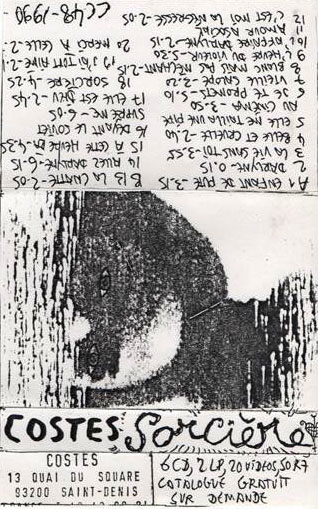 A1 ENFANT DE PUTE -3.15
2 DARLYNE - 0.15
3 LA VIE SANS TOI-3.55
4 BELLE ET CRUELLE -2.40
5 ELLE ME TAILLE UNE PIPE
AU CINEMA -3.50
6 JE TE PROMETS -5.10
7 VIELLE CAROLE -3.20
8 BLANC MAIS PAS MECHANT-2.15
9 L'HEURE DU -5.30
10 L'AFFAIRE DARLYNE -2.15
11 AMOUR ASOCIAL
12 C'EST MOI LA -2.05
B13 LA CHATTE-2.05
14 DARLYNE-6.15
15 A CETTE HEURE-4.35
16 DEVANT LE
SUPREME -6.05
17 ELLE EST DIEU -2.45
18 SORCIERE -4.25
19 J'AI TOUT
20 MERCI A CELLE-2
CC48-1990
COSTES Sorcière
COSTES
13 QUAI DU SQUARE
93200 SAINT-DENIS
6CD, 2LP, 20 VIDEOS, 50K7
CATALOGUE GRATUIT
SUR DEMANDE